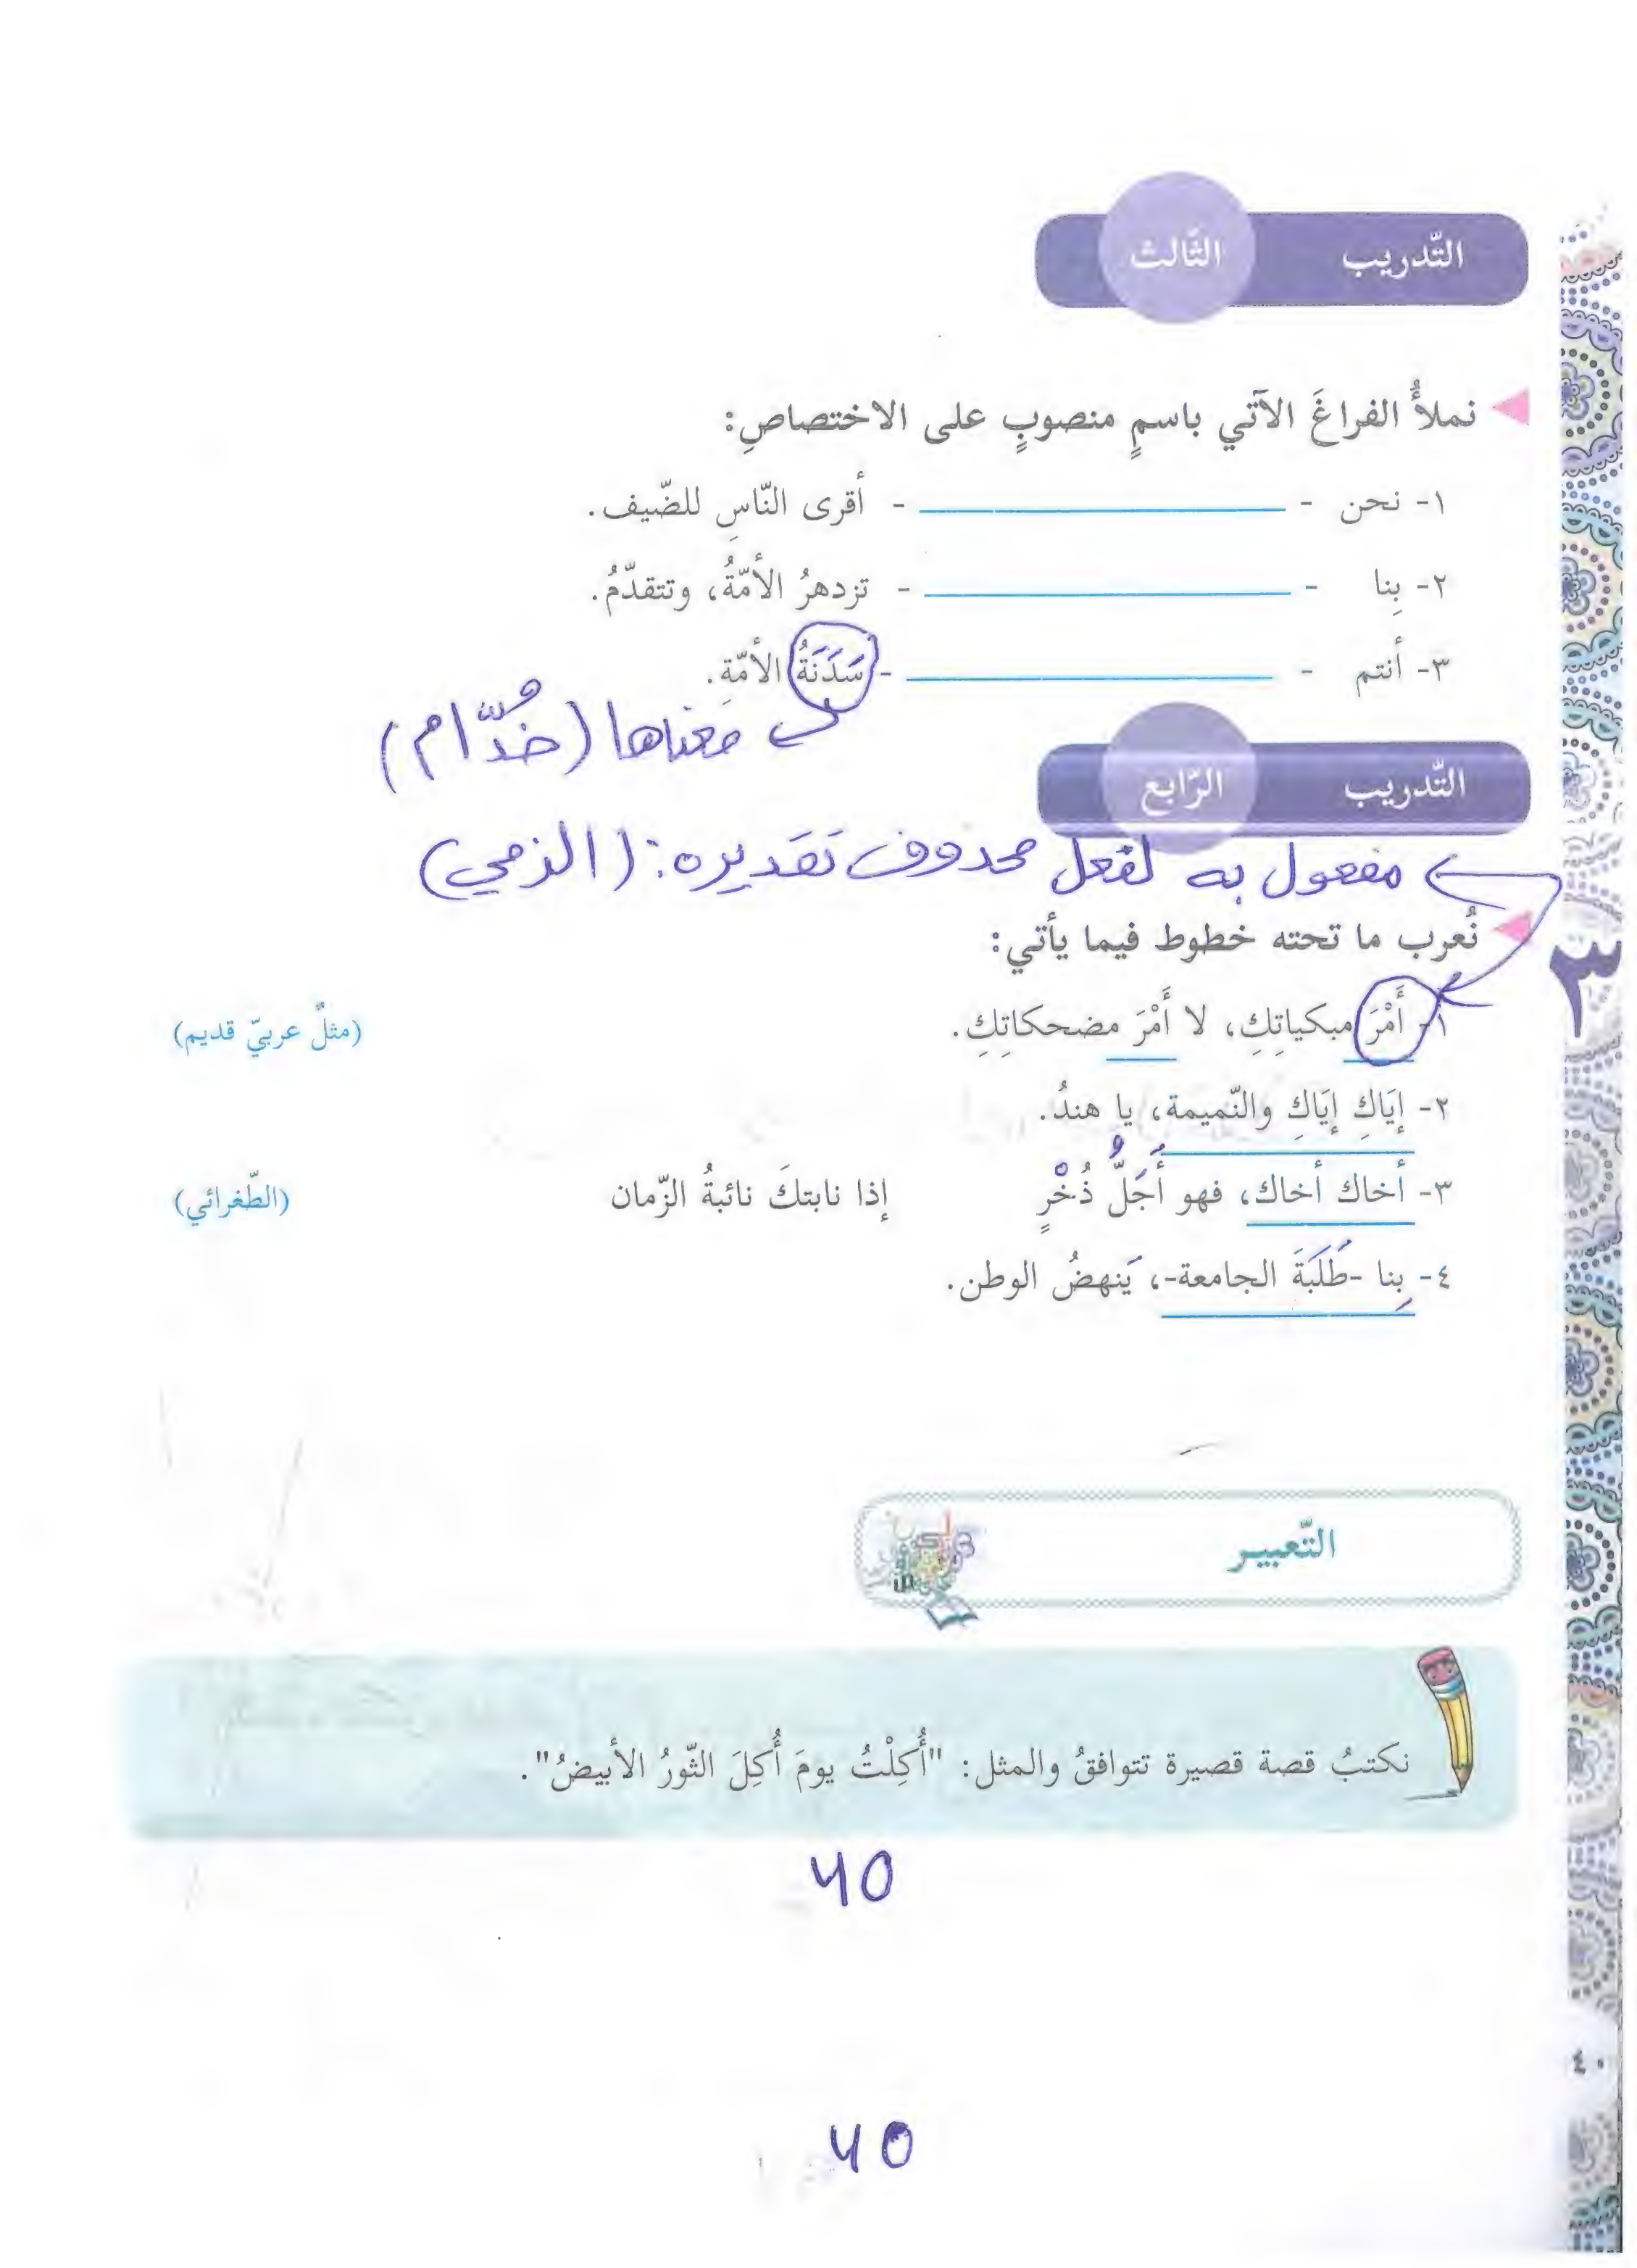 التّدريب الثّالث
نملأُ الفراغَ الآتي باسمٍ منصوبٍ على الاختصاصِ:
١- نحن - - أقرى النّاسِ للضّيف.
٢- بِنا - - تزدهرُ الأمّةُ، وتتقدّمُ.
٣- أنتم - - سَدَنَةُ الأمّةِ.
معناها (خُدّام)
التّدريب الرّابع
مفعول به لفعل محذوف تقديره: (الزمي)
نُعرب ما تحته خطوط فيما يأتي:
١- أَمْرَ مبكياتِكِ، لا أَمْرَ مضحكاتِكِ. (مثلٌ عربيّ قديم)
٢- إيَاكِ إيَاكِ والنّميمة، يا هندُ.
٣- أخاك أخاك، فهو أَجَلُّ ذُخْرٍ إذا نابتكَ نائبةُ الزّمان (الطّغرائي)
٤- بِنا -طَلَبَةَ الجامعة-، يَنهضُ الوطن.
التّعبير
نكتبُ قصة قصيرة تتوافقُ والمثل: "أُكِلْتُ يومَ أُكِلَ الثّورُ الأبيضُ".
40
٤٠
40
٣